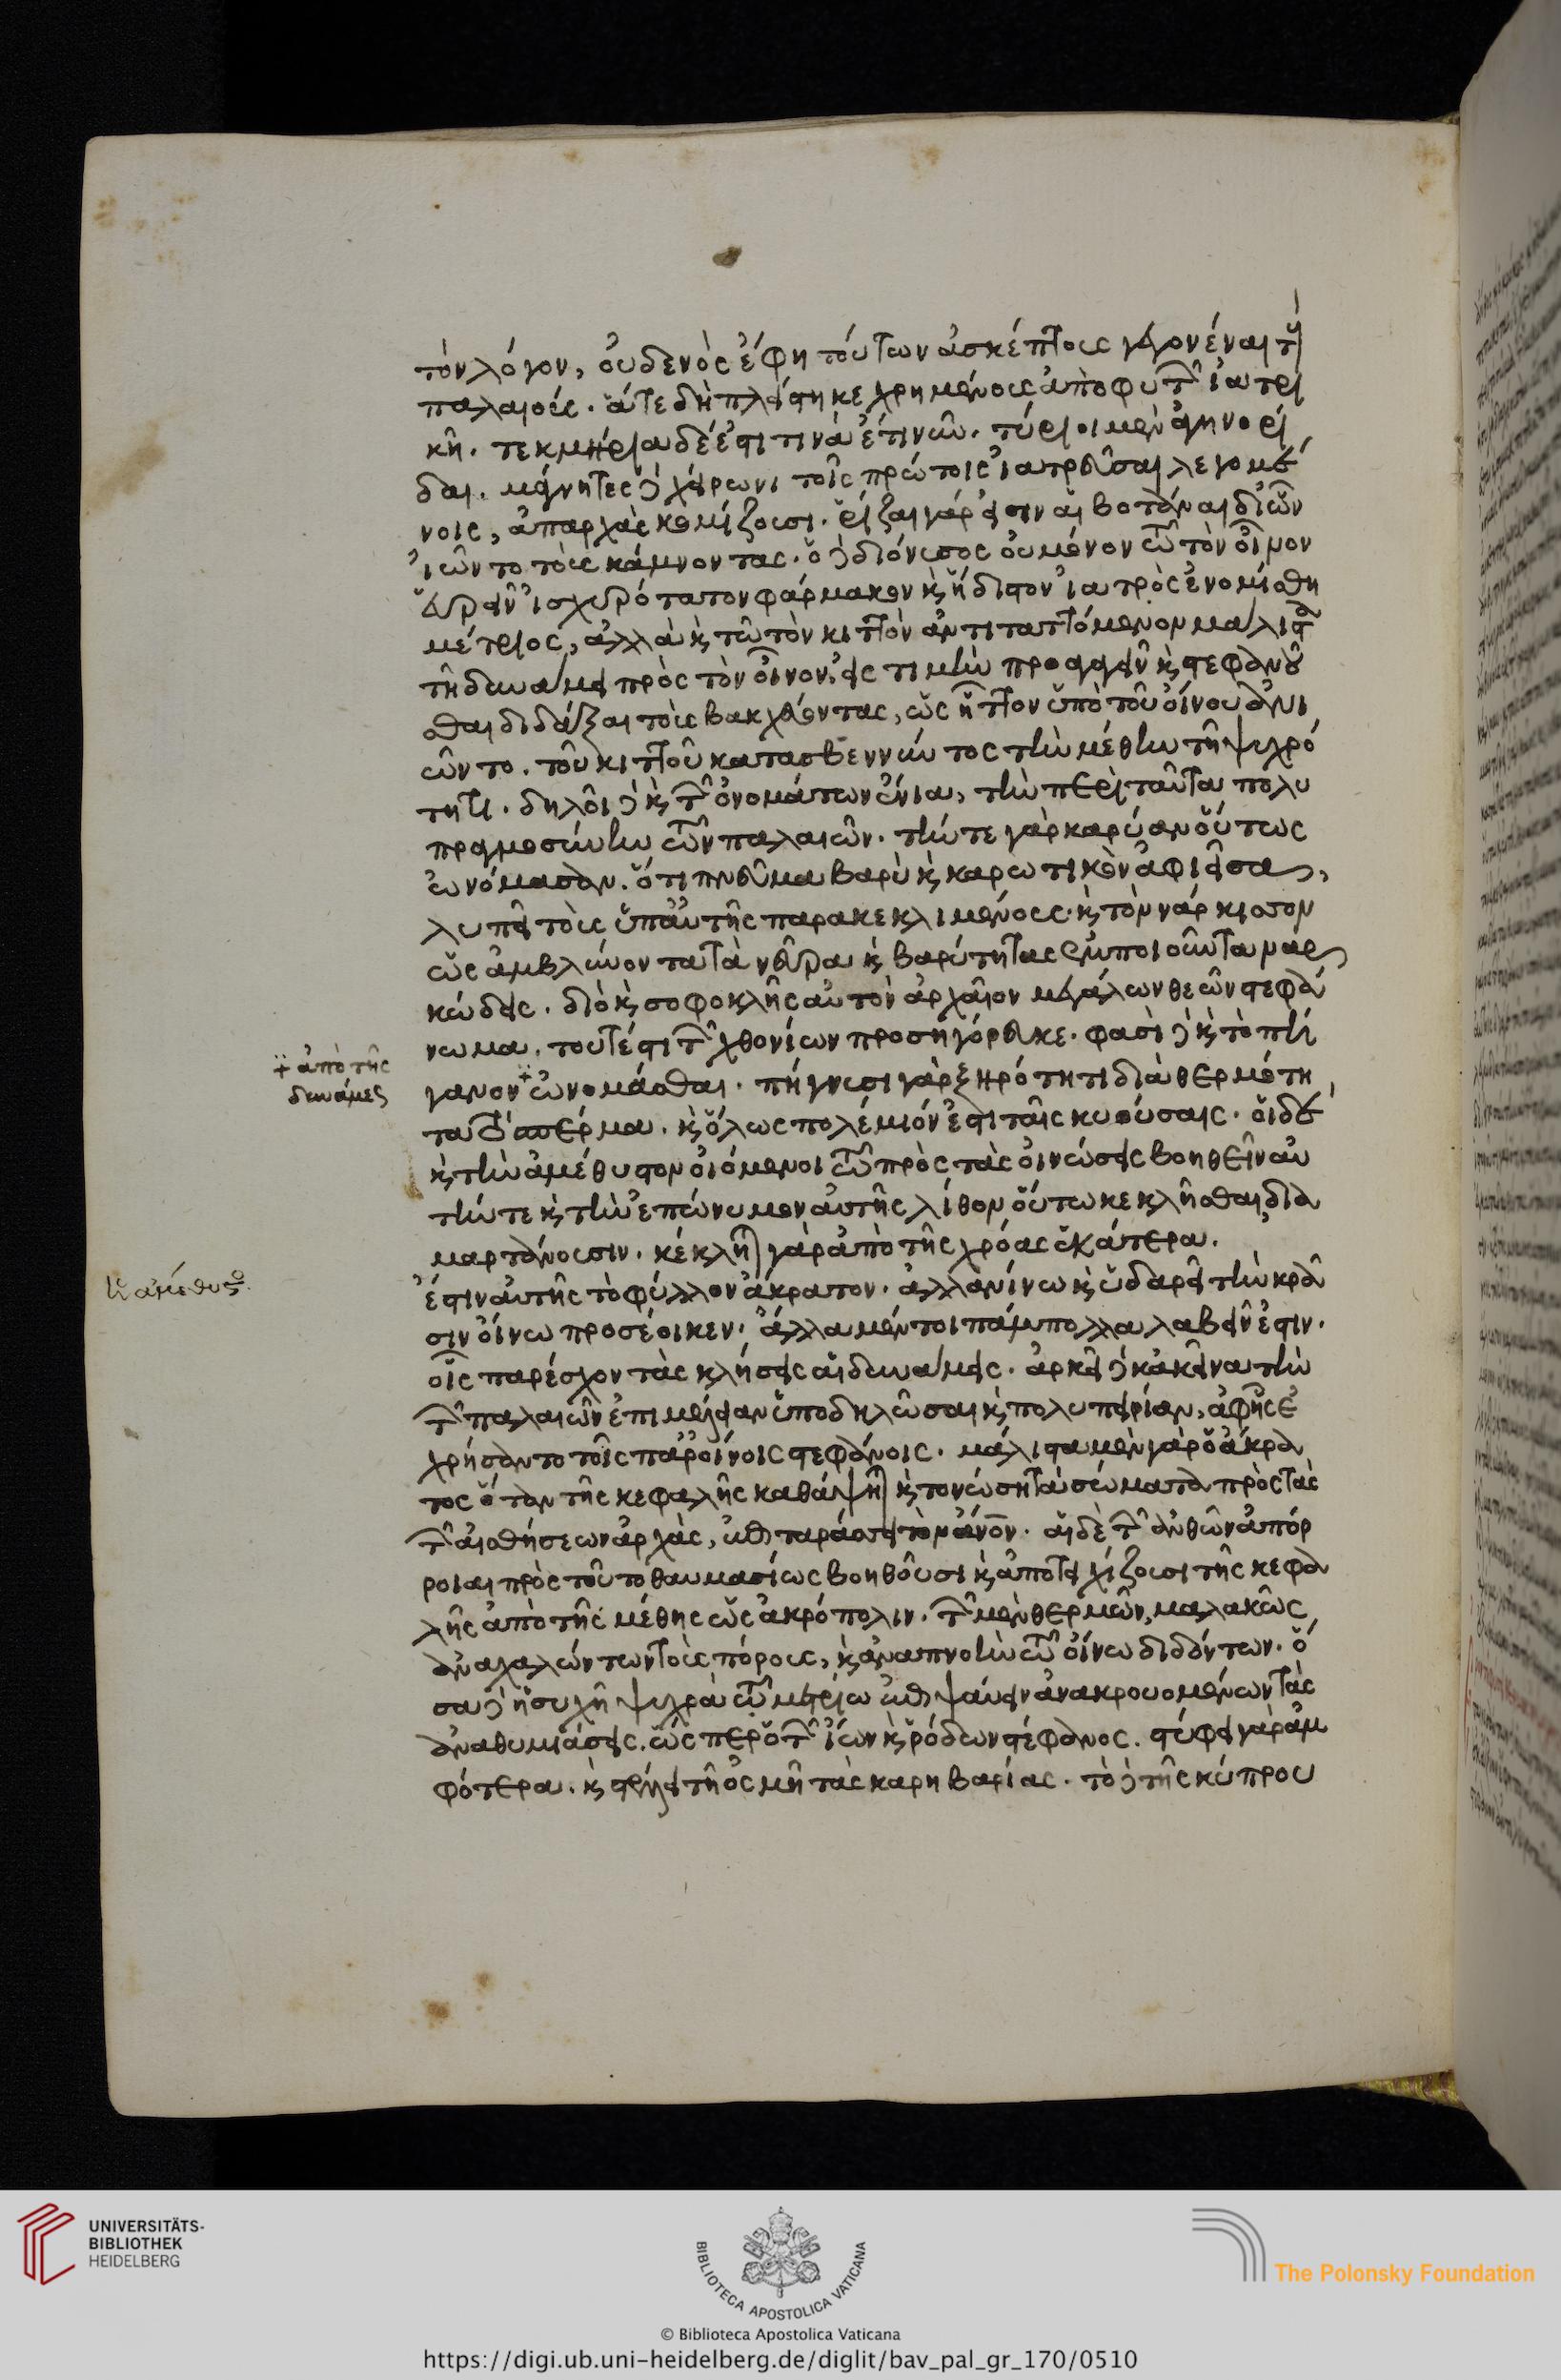 τὸν λόγον, οὐδενὸς ἔφη τούτων ἀσκέπτους γεγονέναι τοὺς
παλαιούς. ἅτε δὴ πλείστῃ κεχρημένους ἀπὸ φυτῶν ἰατρι
κῇ. τεκμήρια δὲ ἐστί τινὰ ἔτι νῦν. τύριοι μὲν ἀγηνορί
δαι. μάγνητες δὲ χείρωνι τοῖς πρώτοις ἰατρεῦσαι λεγομέ
νοις, ἀπαρχὰς κομίζουσι. ῥίζαι γάρ εἰσιν αἱ βοτάναι δι' ὧν
ἰῶντο τοὺς κάμνοντας. ὁ δὲ διόνυσος οὐ μόνον τῷ τὸν οἶνον
εὑρεῖν ἰσχυρότατον φάρμακον καὶ ἥδιστον ἰατρὸς ἐνομίσθη
μέτριος, ἀλλὰ καὶ τῷ τὸν κιττὸν ἀντιταττόμενον μάλιστα
τῇ δυνάμει πρὸς τὸν οἶνον, εἰς τιμὴν προαγαγεῖν καὶ στεφανοῦ
σθαι διδάξαι τοὺς βακχεύοντας, ὡς ἧττον ὑπὸ τοῦ οἴνου ἀνι
ῶντο. τοῦ κιττοῦ κατασβεννύντος τὴν μέθην τῇ ψυχρό
τητι. δηλοῖ δὲ καὶ τῶν ὀνομάτων ἔνια, τὴν περὶ ταῦτα πολυ
πραγμοσύνην τῶν παλαιῶν. τήν τε γὰρ καρύαν οὕτως
ὠνόμασαν. ὅτι πνεῦμα βαρὺ καὶ καρωτικὸν ἀφιεῖσα,
λυπεῖ τοὺς ὑπ' αὐτῆς παρακεκλιμένους. καὶ τὸν νάρκισσον
ὡς ἀμβλύνοντα τὰ νεῦρα καὶ βαρύτητας ἐμποιοῦντα ναρ
κώδεις. διὸ καὶ σοφοκλῆς αὐτὸν ἀρχαῖον μεγάλων θεῶν στεφά
νωμα, τουτέστι τῶν χθονίων προσηγόρευκε. φασὶ δὲ καὶ τὸ πή
γανον ὠνομάσθαι. πήγνυσι γὰρ ξηρότητι διὰ θερμότη
τα τὸ σπέρμα. καὶ ὅλως πολέμιόν ἐστι ταῖς κυούσαις. οἱ δὲ
καὶ τὴν ἀμέθυστον οἰόμενοι τῷ πρὸς τὰς οἰνώσεις βοηθεῖν αὐ
τήν τε καὶ τὴν ἐπώνυμον αὐτῆς λίθον οὕτω κεκλῆσθαι, δια
μαρτάνουσιν. κέκληται γὰρ ἀπὸ τῆς χρόας ἑκάτερα.
ἔστιν αὐτῆς τὸ φύλλον ἀκράτῳ. ἀλλ' ἀνίνῳ καὶ ὑδαρεῖ τὴν κρᾶ
σιν οἴνῳ προσέοικεν. ἄλλα μέντοι πάμπολλα λαβεῖν ἔστιν.
οἷς παρέσχον τὰς κλήσεις αἱ δυνάμεις. ἀρκεῖ δὲ κἀκεῖνα τὴν
τῶν παλαιῶν ἐπιμέλειαν ὑποδηλῶσαι καὶ πολυπειρίαν, ἀφ' ἧς ἐ
χρήσαντο τοῖς παροίνοις στεφάνοις. μάλιστα μὲν γὰρ ὁ ἄκρα
τος ὅταν τῆς κεφαλῆς καθάψηται καὶ τονώσῃ τὰ σώματα πρὸς τὰς
τῶν αἰσθήσεων ἀρχὰς, ἐπιταράσσει τὸν ἄνον. αἱ δὲ τῶν ἀνθῶν ἀπόρ
ροιαι πρὸς τοῦτο θαυμασίως βοηθοῦσι καὶ ἀποτειχίζουσι τὴν κεφα
λὴν ἀπὸ τῆς μέθης ὡς ἀκρόπολιν. τῶν μὲν θερμῶν, μαλακῶς
ἀναχαλώντων τοὺς πόρους, καὶ ἀναπνοὴν τῷ οἴνῳ διδόντων. ὅ
σα δὲ ἡσυχῇ ψυχρὰ τῷ μετρίῳ ἐπιψαύειν ἀνακρουομένων τὰς
ἀναθυμιάσεις, ὥσπερ ὁ τῶν ἴων καὶ ῥόδων στέφανος. στύφει γὰρ ἀμ
φότερα. καὶ στέλλει τῇ ὀσμῇ τὰς καρηβαρίας. τὸ δὲ τῆς κύπρου
ἀπὸ τῆς
δυνάμεως
UNIVERSITÄTS-
BIBLIOTHEK
HEIDELBERG
BIBLIOTECA APOSTOLICA VATICANA
The Polonsky Foundation
© Biblioteca Apostolica Vaticana
https://digi.ub.uni-heidelberg.de/diglit/bav_pal_gr_170/0510